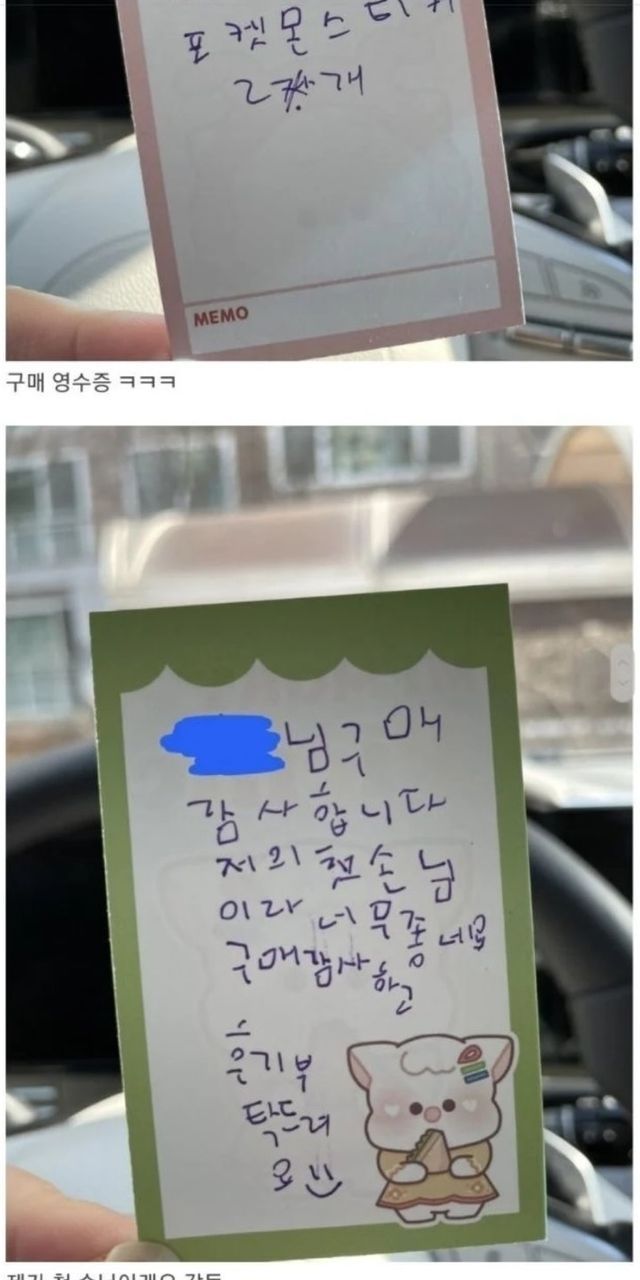 포켓몬스티커
2장개
MEMO
구매 영수증 ㅋㅋㅋ
님구매
감사합니다
저의첫손님
이라 너무좋네요
구매감사하고
은기부
탁드려
요